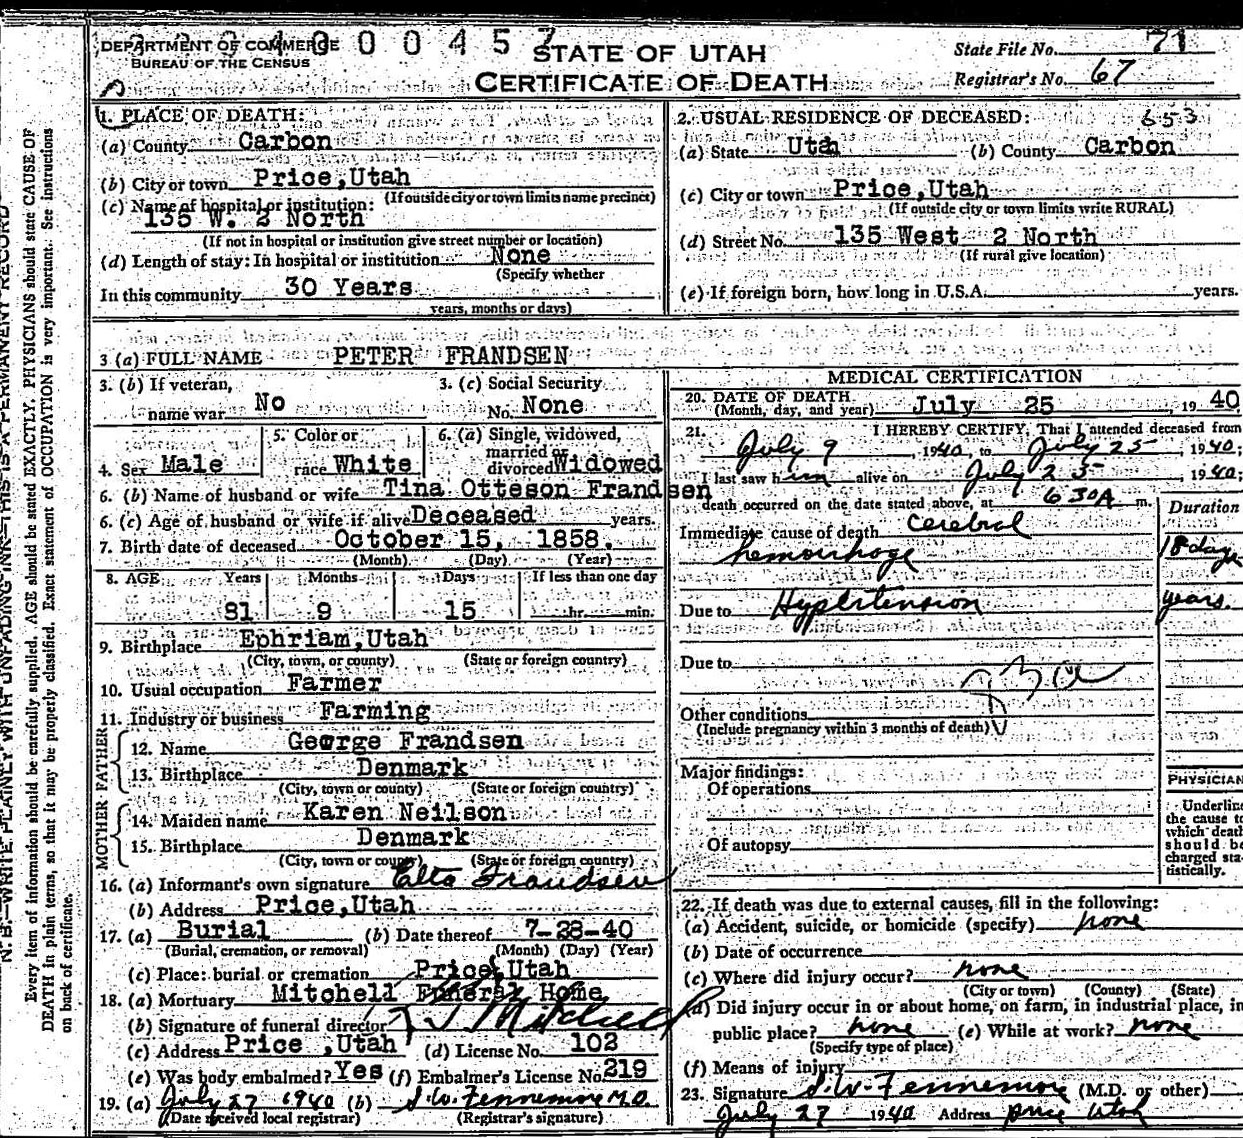 DEPARTMENT OF COMMERCE
BUREAU OF THE CENSUS
STATE OF UTAH
CERTIFICATE OF DEATH
State File No. 71
Registrar's No. 67
1. PLACE OF DEATH:
(a) County Carbon
(b) City or town Price,Utah
(If outside city or town limits name precinct)
(c) Name of hospital or institution:
135 W. 2 North
(If not in hospital or institution give street number or location)
(d) Length of stay: In hospital or institution None
(Specify whether
In this community 30 Years
years, months or days)
2. USUAL RESIDENCE OF DECEASED: 653
(a) State Utah (b) County Carbon
(c) City or town Price,Utah
(If outside city or town limits write RURAL)
(d) Street No. 135 West 2 North
(If rural give location)
(e) If foreign born, how long in U.S.A. years.
3 (a) FULL NAME PETER FRANDSEN
3. (b) If veteran, name war No
3. (c) Social Security No. None
4. Sex Male
5. Color or race White
6. (a) Single, widowed, married or divorced Widowed
6. (b) Name of husband or wife Tina Otteson Frandsen
6. (c) Age of husband or wife if alive Deceased years.
7. Birth date of deceased October 15, 1858.
(Month) (Day) (Year)
8. AGE Years Months Days If less than one day
81 9 15 hr. min.
9. Birthplace Ephriam,Utah
(City, town, or county) (State or foreign country)
10. Usual occupation Farmer
11. Industry or business Farming
FATHER
12. Name George Frandsen
13. Birthplace Denmark
(City, town or county) (State or foreign country)
MOTHER
14. Maiden name Karen Neilson
15. Birthplace Denmark
(City, town or county) (State or foreign country)
16. (a) Informant's own signature Elta Frandsen
(b) Address Price,Utah
17. (a) Burial (b) Date thereof 7-28-40
(Burial, cremation, or removal) (Month) (Day) (Year)
(c) Place: burial or cremation Price, Utah
18. (a) Mortuary Mitchell Funeral Home
(b) Signature of funeral director J Mitchell
(c) Address Price ,Utah (d) License No. 102
(e) Was body embalmed? Yes (f) Embalmer's License No. 219
19. (a) July 27 1940 (b) S.W. Fennemore M.D.
(Date received local registrar) (Registrar's signature)
MEDICAL CERTIFICATION
20. DATE OF DEATH
(Month, day, and year) July 25, 1940
21. I HEREBY CERTIFY, That I attended deceased from
July 9, 1940, to July 25, 1940;
I last saw him alive on July 25, 1940;
death occurred on the date stated above, at 6 30A m.
Duration
Immediate cause of death cerebral
hemorrhage 18 days
Due to Hypertension years.
Due to
Other conditions
(Include pregnancy within 3 months of death)
Major findings:
Of operations
Of autopsy
PHYSICIAN
Underline
the cause to
which death
should be
charged sta-
tistically.
22. If death was due to external causes, fill in the following:
(a) Accident, suicide, or homicide (specify) none
(b) Date of occurrence
(c) Where did injury occur? none
(City or town) (County) (State)
(d) Did injury occur in or about home, on farm, in industrial place, in
public place? none (e) While at work? none
(Specify type of place)
(f) Means of injury
23. Signature S.W. Fennemore (M.D. or other)
July 27 1940 Address Price Utah
N. B.—WRITE PLAINLY WITH UNFADING INK—THIS IS A PERMANENT RECORD
Every item of information should be carefully supplied. AGE should be stated EXACTLY. PHYSICIANS should state CAUSE OF
DEATH in plain terms, so that it may be properly classified. Exact statement of OCCUPATION is very important. See instructions
on back of certificate.